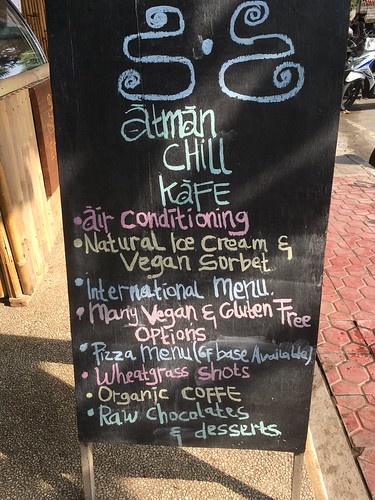 ātmān
CHILL
KāFE
• āir conditioning
• Natural Ice Cream &
Vegan Sorbet
• International Menu.
• Many Vegan & Gluten Free
Options
• Pizza Menu (GF base Available)
• Wheatgrass Shots
• Organic COFFE
• Raw Chocolates
& desserts